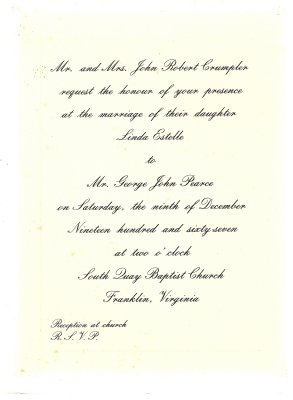 Mr. and Mrs. John Robert Crumpler
request the honour of your presence
at the marriage of their daughter
Linda Estelle
to
Mr. George John Pearce
on Saturday, the ninth of December
Nineteen hundred and sixty-seven
at two o'clock
South Quay Baptist Church
Franklin, Virginia
Reception at church
R. S. V. P.